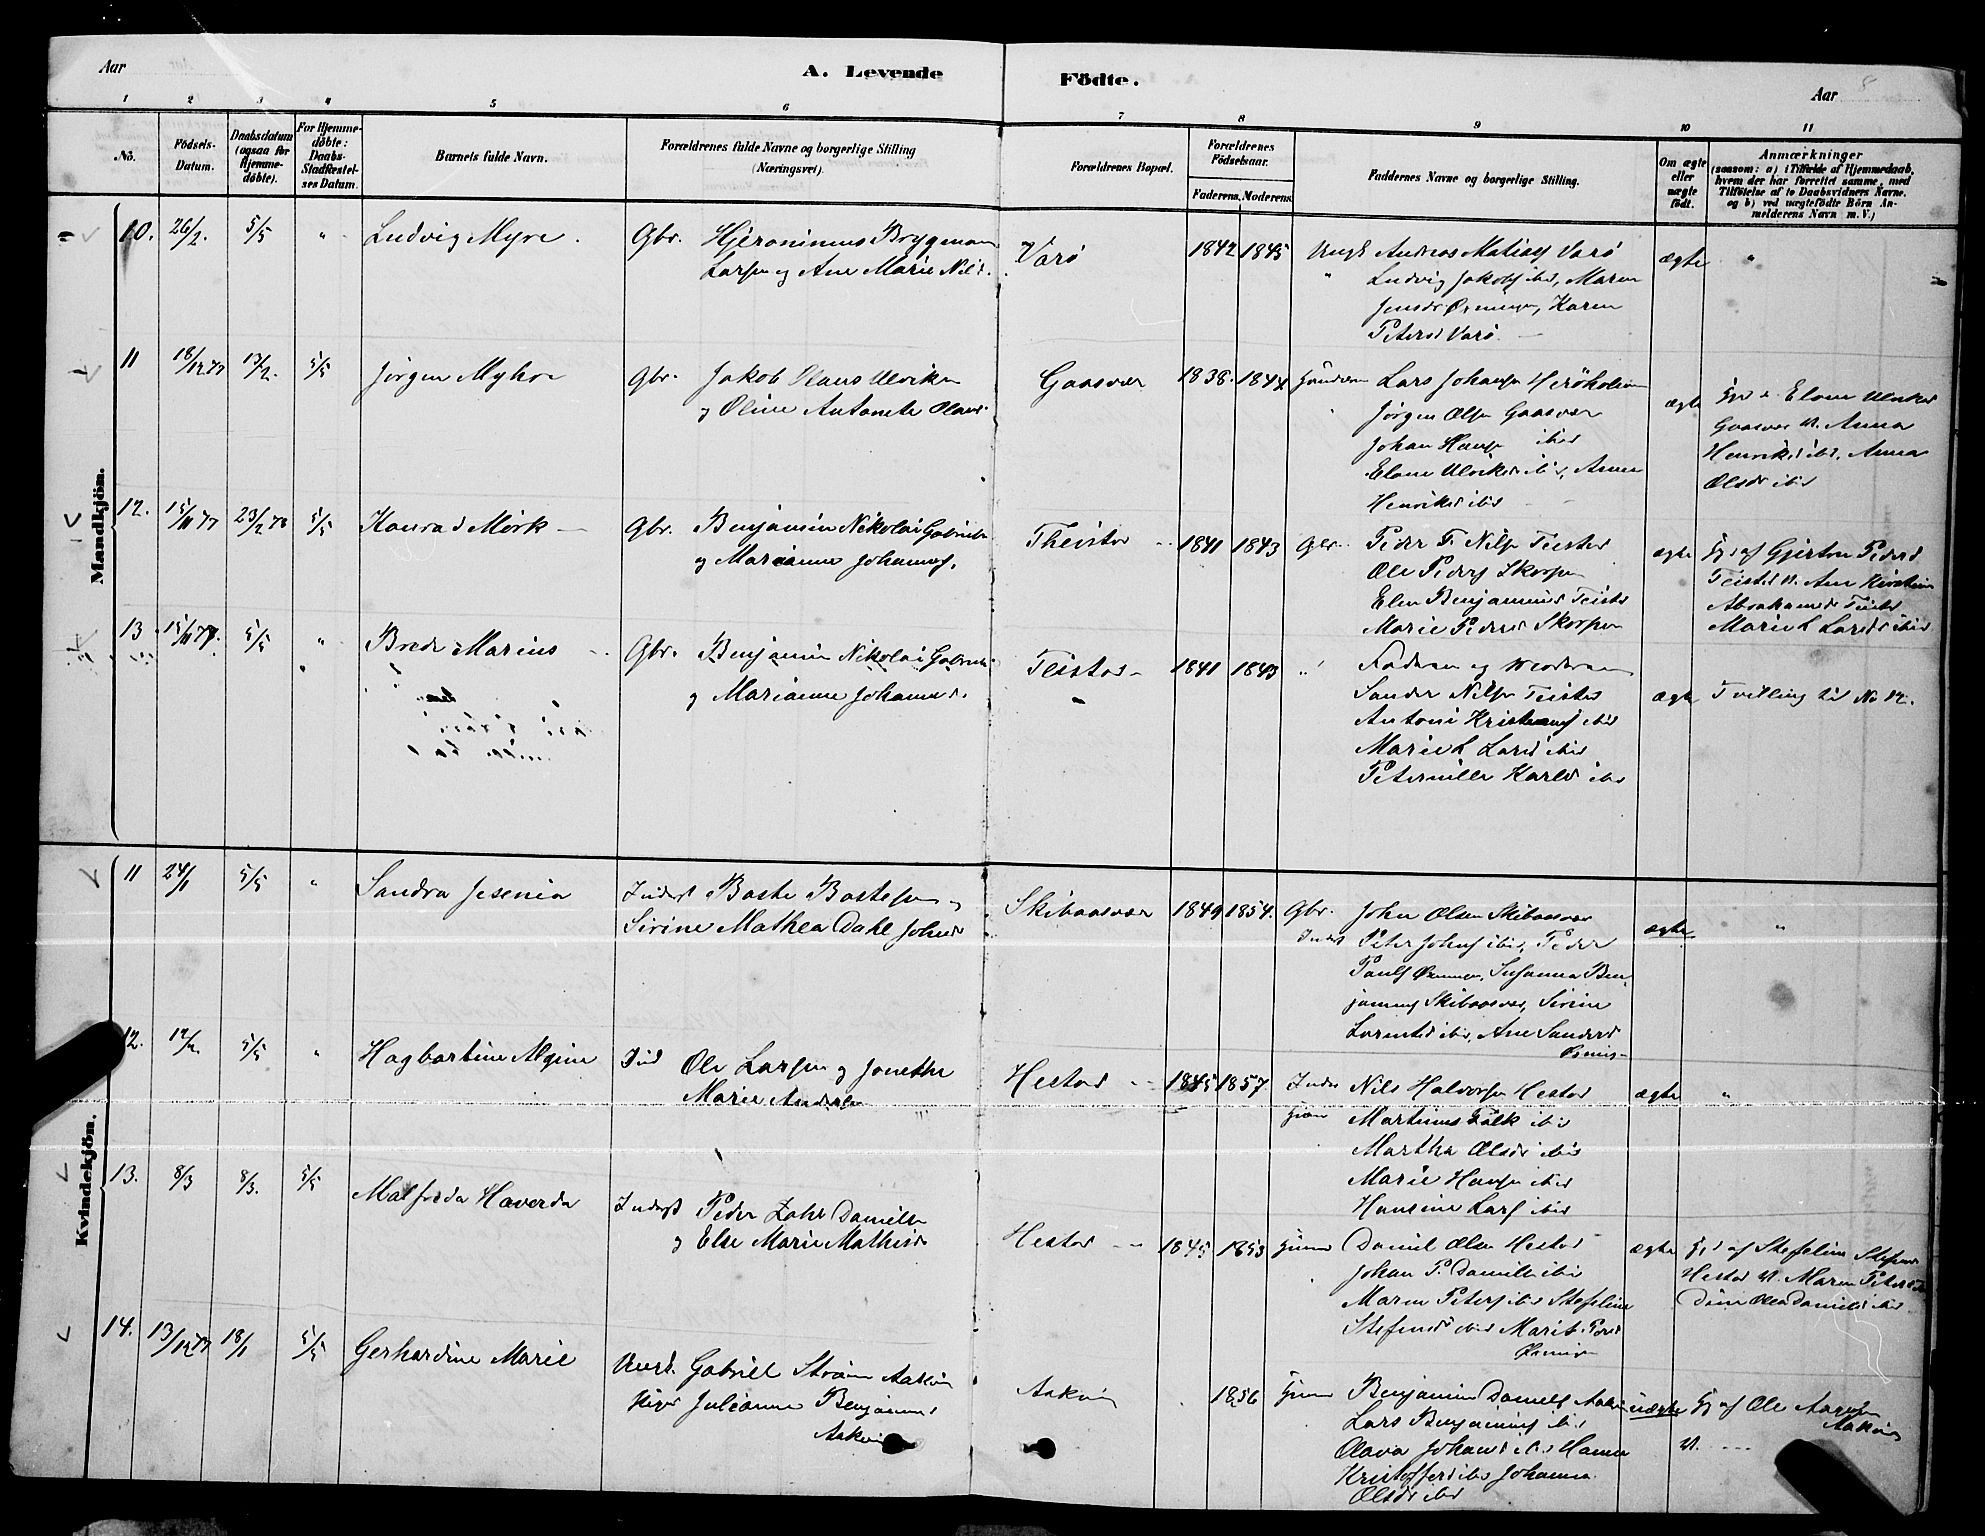 Aar
A. Levende
Födte.
Aar
8
1 2 3 4 5 6 7 8 9 10 11
No.
Födsels-
Datum.
Daabsdatum
(ogsaa for
Hjemme-
döbte).
For Hjemme-
döbte:
Daabs-
Stadfæstel-
ses Datum.
Barnets fulde Navn.
Forældrenes fulde Navne og borgerlige Stilling
(Næringsvei).
Forældrenes Bopæl.
Forældrenes
Födselsaar.
Faderens. Moderens.
Faddernes Navne og borgerlige Stilling.
Om ægte
eller
uægte
födt.
Anmærkninger
(saasom: a) i Tilfælde af Hjemmedaab,
hvem der har forrettet samme, med
Tilföielse af to Daabsvidners Navne.
og b) ved uægtefödte Börn An-
melderens Navn m. V.)
Mandkjön.
10. 26/2. 5/5 " Ludvig Myre.
Gbr. Hjeronimus Brygman
Larsen og Ane Marie Nils.
Varö
1842 1845
Ungk Andreas Matiass Varö
" Ludvig Jakobs ibid, Maren
Jensdr Öxningen, Karen
Petersd Varö.
ægte "
11 18/12 77 17/2. 5/5 Jørgen Myhre
Gbr. Jakob Klaus Ulriksen
og Oline Antonete Olausd.
Gaasvær
1838. 1844
Lars Johansen Herøholmen
Jørgen Olsen Gaasvær
Johan Hansen ibid
Elane Ulriksd ibid, Anna
Henriksd ibid
ægte
Hjd. af Elane Ulriksd
Gaasvær V. Anna
Henriksd ibid, Anna
Olsdr ibid
12. 15/11 77 23/2 78 5/5 Konrad Mørk
Gbr. Benjamin Nikolai Gabrielsen
og Marianne Johannesd.
Theistor
1841 1843
Gbr. Peder F. Nilsen Teistor
Ole Peders Skorpen
Elen Benjaminsd Teistor
Marie Pedersd Skorpen
ægte
Hjd af Gjertru Pedersd
Teistor V. Ane Kirstine
Abrahamsd Teistor
Marie L Larsdr ibid
13 15/11 77. 5/5 " Brede Marius
Gbr. Benjamin Nikolai Gabrielsen
og Marianne Johannesd.
Teistor
1841 1843
" Faderen og Moderen
Sander Nilsen Teistor
Antoni Kristians ibid
Marie L Larsd ibid
Peternille Karlsd ibid
ægte Tvilling til No 12.
Kvindekjön.
11 24/1 5/5 " Sandra Jesenia
Inderst Baste Bastesen og
Sirine Mathea Dahl Johnsd
Skibaasvær
1849 1854.
Gbr. John Olsen Skibaasvær
Inderst Peter Johns ibid, Peder
Pauls Öxningen, Susanna Ben-
jamins Skibaasvær, Sirine
Lorentsd ibid, Ane Sandersd
Öxning
ægte "
12. 12/2. 5/5 " Hagbartine Algine
Ind Ole Larsen og Jonetha
Marie Andersd
Hestad
1845 1857.
Inders Nils Halvorsen Hestad
Martinus Falk ibid
Martha Olsdr ibid
Marie Hansen ibid
Hansine Lars ibid
ægte "
13. 8/3 8/3. 5/5 Malfreda Haverda
Inderst Peder Zahr Danielsen
og Else Marie Mathisd
Hestad
1845 1853
Daniel Olsen Hestad
Johan P. Daniels ibid
Maren Peters ibid Stefeline
Stefensdr ibid Marit Pedersd
Öxningen
ægte
Hjd af Stefeline Stefensd
Hestad V. Maren Petersd
Olea Danielsd ibid
14. 13/12 77 18/1 5/5 Gerhardine Marie
Ungk. Gabriel Strøm Aakvik
Pige Julianne Benjaminsd
Aakvik
Aakvik
1856
Benjamin Daniels Aakvik
Lars Benjamins ibid
Olava Johansd ibid Hanna
Kristoffersd ibid Johanna
Olsdr ibid
uægte
Hjd af Ole Aagesen
Aakvik
V. ----